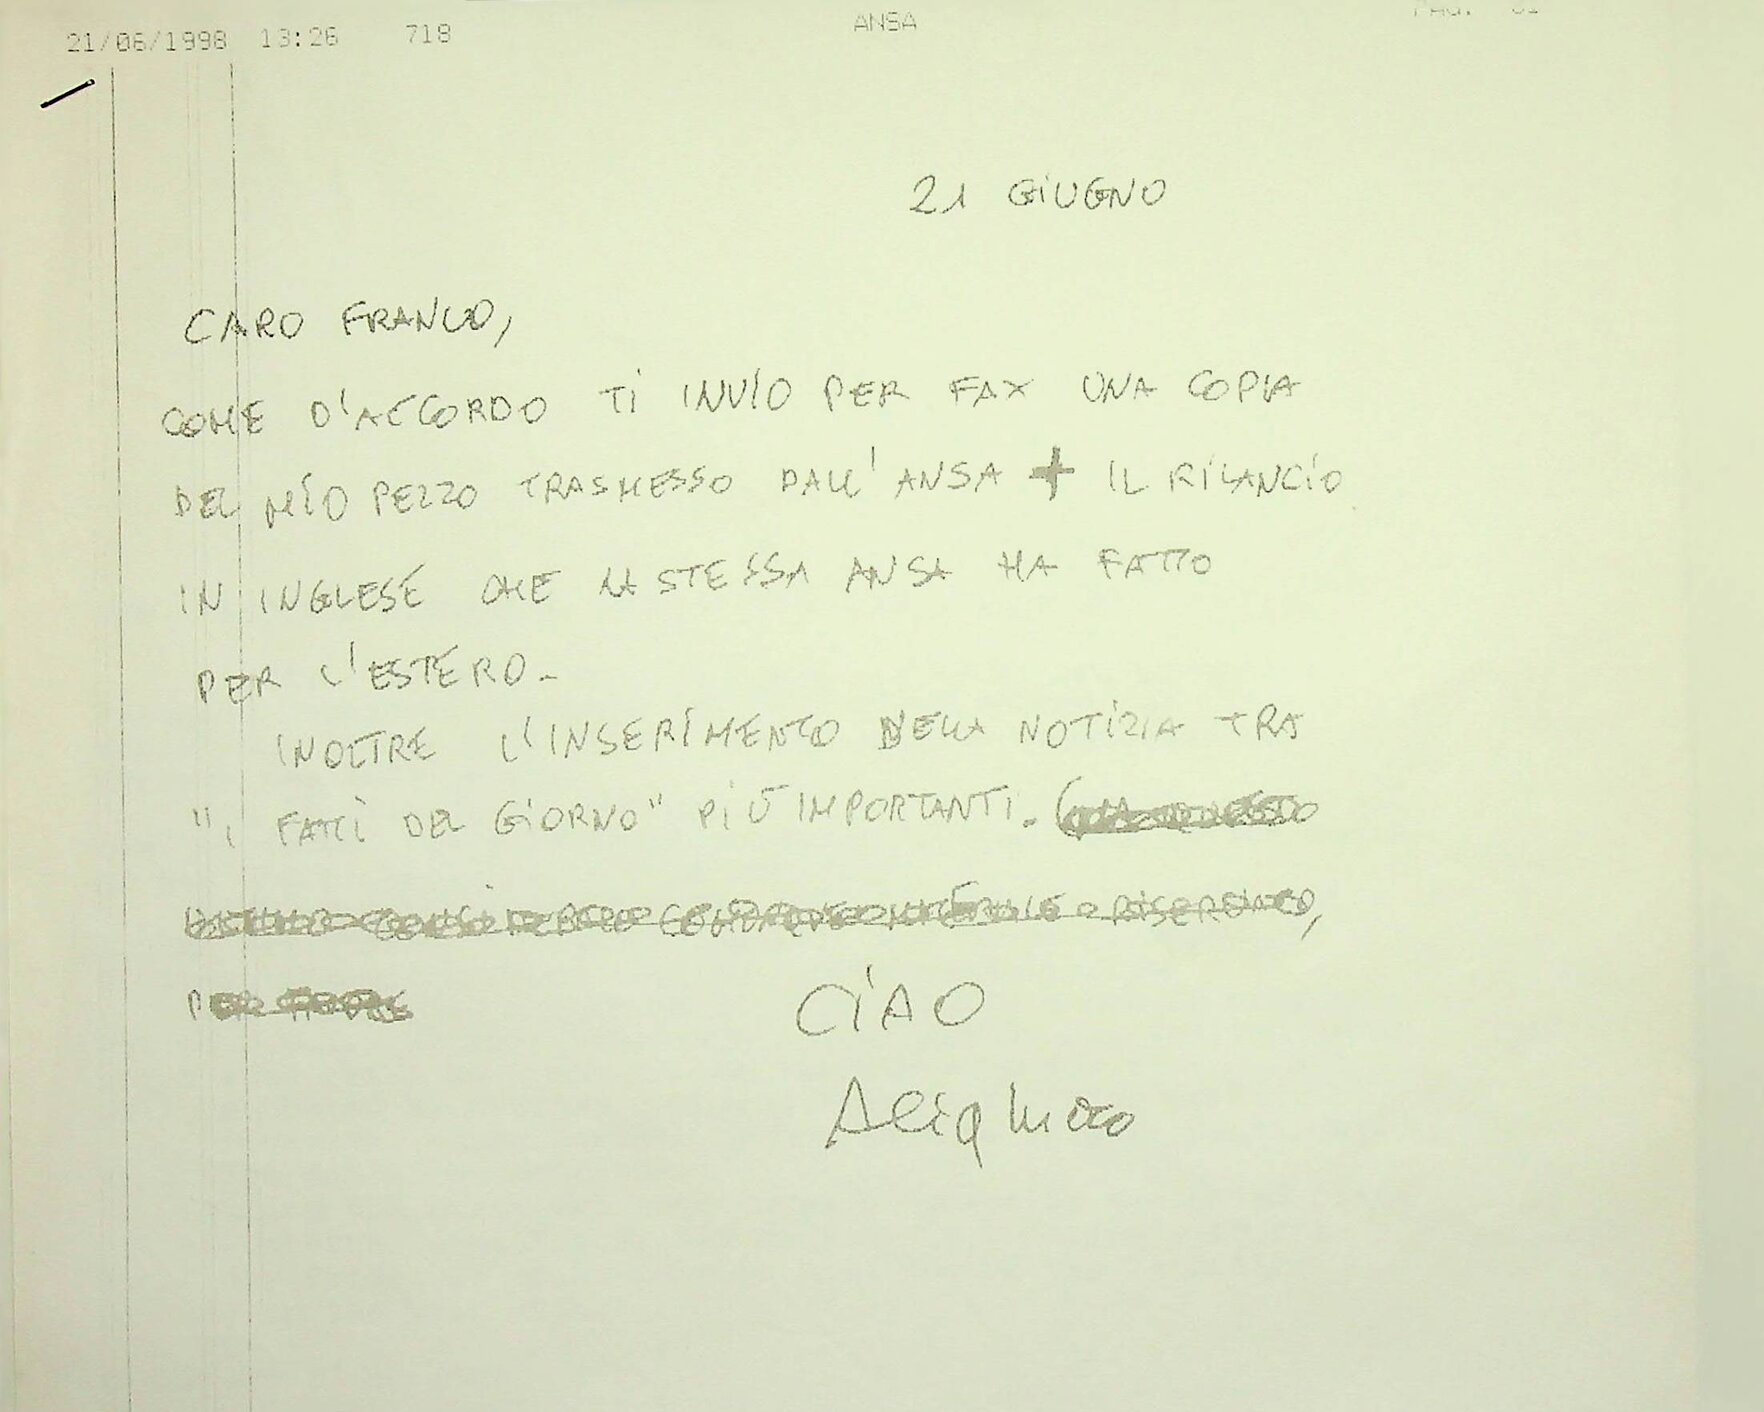 21/06/1998 13:26 718 ANSA PAG. 01
21 GIUGNO
CARO FRANCO,
COME D'ACCORDO TI INVIO PER FAX UNA COPIA
DEL MIO PEZZO TRASMESSO DALL'ANSA + IL RILANCIO
IN INGLESE CHE LA STESSA ANSA HA FATTO
PER L'ESTERO.
INOLTRE L'INSERIMENTO DELLA NOTIZIA TRA
"I FATTI DEL GIORNO" PIÙ IMPORTANTI.
CIAO